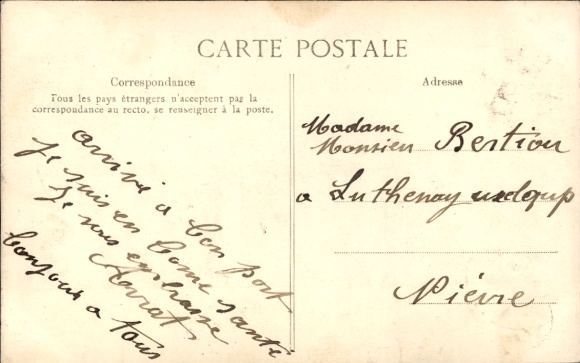 CARTE POSTALE
Correspondance
Tous les pays étrangers n'acceptent pas la
correspondance au recto, se renseigner à la poste.
arrivé a bon port
Je suis en bonne santé
Je vous embrasse
bonjour a tous
Adresse
Madame
Monsieu Bertiou
a Luthenay uxeloup
Nièvre